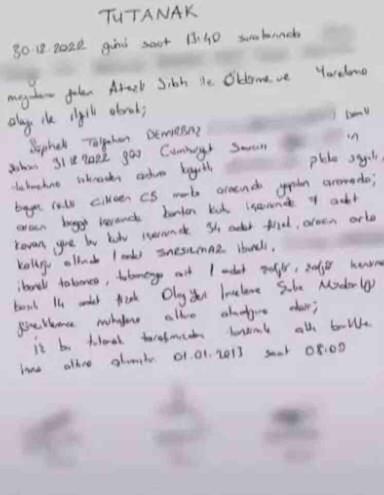 TUTANAK
30.12.2022 günü saat 13:40 sıralarında
meydana gelen Ateşli Silah ile Öldürme ve Yaralama
olayı ile ilgili olarak;
Şüpheli Tolgahan DEMİRBAŞ isimli
şahsın 31.12.2022 günü Cumhuriyet Savcısı in
talimatına istinaden adına kayıtlı plaka sayılı,
beyaz renkli CITROEN C5 marka aracında yapılan aramada;
aracın bagaj kısmında karton kutu içerisinde 4 adet
kovan, yine bu kutu içerisinde 34 adet fişek, aracın arka
koltuğu altında 1 adet SARSILMAZ ibareli,
ibareli tabanca, tabancaya ait 1 adet şarjör, şarjör
basılı 14 adet fişek Olay Yeri İnceleme Şube Müdürlüğü
görevlilerince muhafaza altına alındığına dair;
İş bu tutanak tarafımızdan tanzimle altı birlikte
imza altına alınmıştır. 01.01.2013 saat 08:00